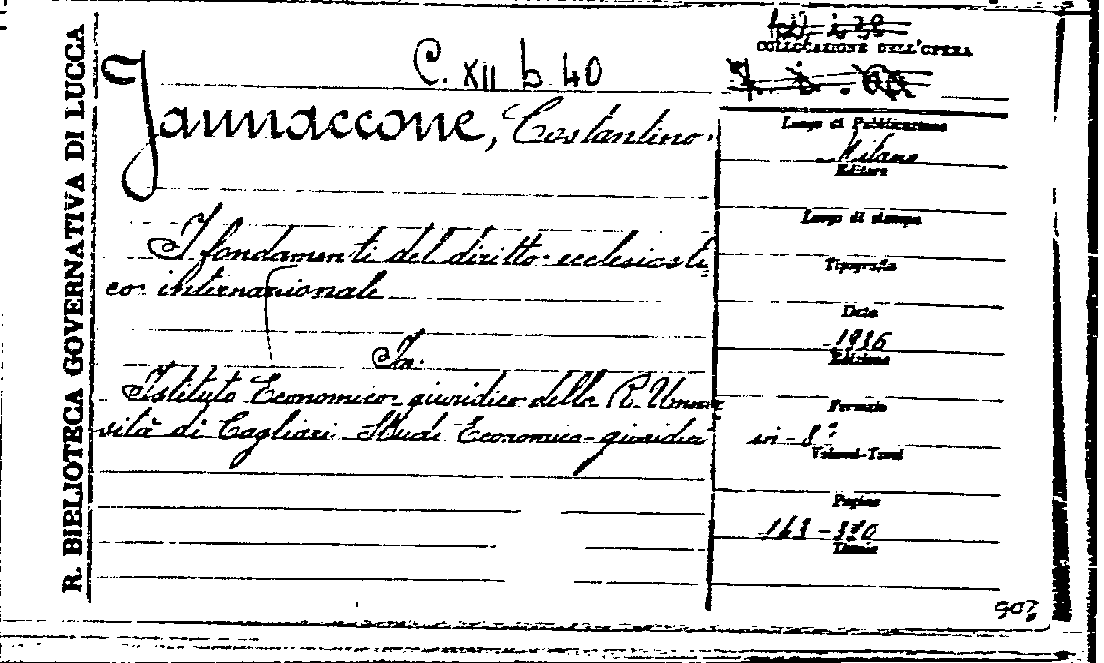 R. BIBLIOTECA GOVERNATIVA DI LUCCA
C. XII b 40
Jannaccone, Costantino.
I fondamenti del diritto ecclesiasti-
co internazionale
In:
Istituto Economico giuridico della R. Univer
sità di Cagliari. Studi Economico-giuridici
COLLOCAZIONE DELL'OPERA
Luogo di Pubblicazione
Milano
Editore
Luogo di stampa
Tipografia
Data
1936
Edizione
Formato
in-8°
Volumi-Tomi
Pagine
Tavole